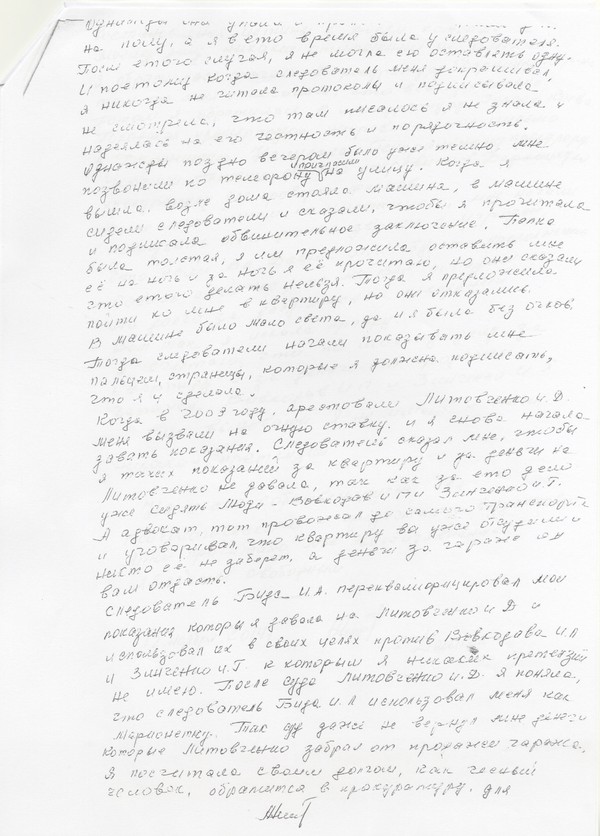 Однажды она упала и
на полу, а я в ето время была у следователя.
После етого случая, я не могла ею оставлять одну.
И поетому когда следователь меня допрашивал,
я никогда не читала протоколы и подписывала
не смотрела, что там писалось я не знала и
надеялась на его честность и порядочность.
Однажды поздно вечером было уже темно. мне
позвонили по телефону пригласили на улицу. Когда я
вышла. возле дома стояла машина, в машине
сидели следователи и сказали, чтобы я прочитала
и подписала обвинительное заключение. Папка
была толстая, я им предложила оставить мне
её на ночь и за ночь я её прочитаю, но они сказали
что этого делать нельзя. Тогда я предложила
пойти ко мне в квартиру, но они отказались.
В машине было мало света, да и я была без очков.
Тогда следователи начали показывать мне
пальцем, страницы, которые я должна подписать,
что я и сделала.
Когда в 2009 году. арестовали Литовченко И.Д.
меня вызвали на очную ставку. и я снова начала
давать показания. Следователь сказал мне, чтобы
я таких показаний за квартиру и за деньги на
Литовченко не давала, так как за ето дело
уже сидять люди - Вовкодав И П и Зинченко И.Г.
А адвокат, тот провожал до самого транспорта
и уговаривал, что квартиру вы уже отсудили и
никто её не заберет, а деньги за гараж он
вам отдасть.
Следователь Бида И.А. переквалифицировал мои
показания которы я давала на Литовченко И Д и
использовал их в своих целях против Вовкодава И П
и Зинченко И.Г к которым я никаких претензий
не имею. После суда Литовченко И.Д. я поняла,
что следователь Бида И.А использовал меня как
марионетку. Так суд даже не вернул мне деньги
которые Литовченко забрал от продажи гаража.
Я посчитала своим долгом, как чесный
человек, обратится в прокуратуру. для